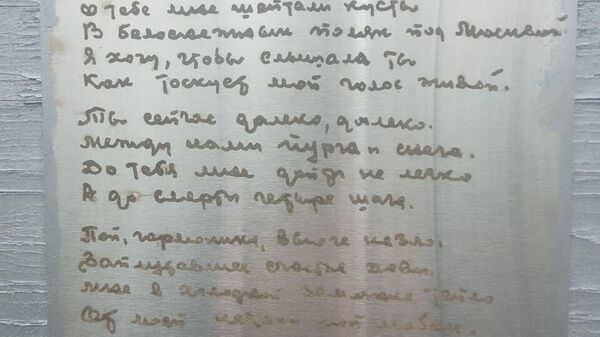 О тебе мне шептали кусты
В белоснежных полях под Москвой.
Я хочу, чтобы слышала ты
Как тоскует мой голос живой.
Ты сейчас далеко, далеко.
Между нами пурга и снега.
До тебя мне дойти не легко
А до смерти четыре шага.
Пой, гармоника, вьюге назло.
Заплутавшее счастье зови.
Мне в холодной землянке тепло
От моей негасимой любви.